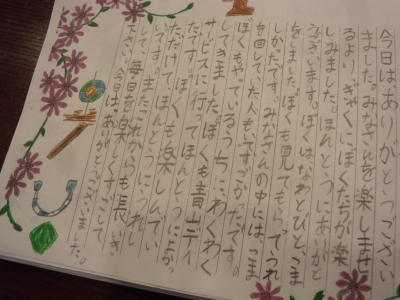 今日は、ありがとうござい
ました。みなさんを楽しませ
るより、ぎゃくにぼくたちが楽
しみました。ほんとうにありがと
うございます。ぼくは、なわとびとこま
をしました。ぼくも見てもらってうれ
しかったです。みなさんの中には、こま
を回していた人もいてすごかったです。
ぼくもやっているうちに、わくわく
してきました。ぼくも青山デイ
サービスに行ってほんとうによかっ
たです。ぼくも楽しんでい
ただけて、ほんとうにうれし
いです。またこれからも長いき
して、毎日を楽しくすごして
下さい。今日は、ありがとうございました。